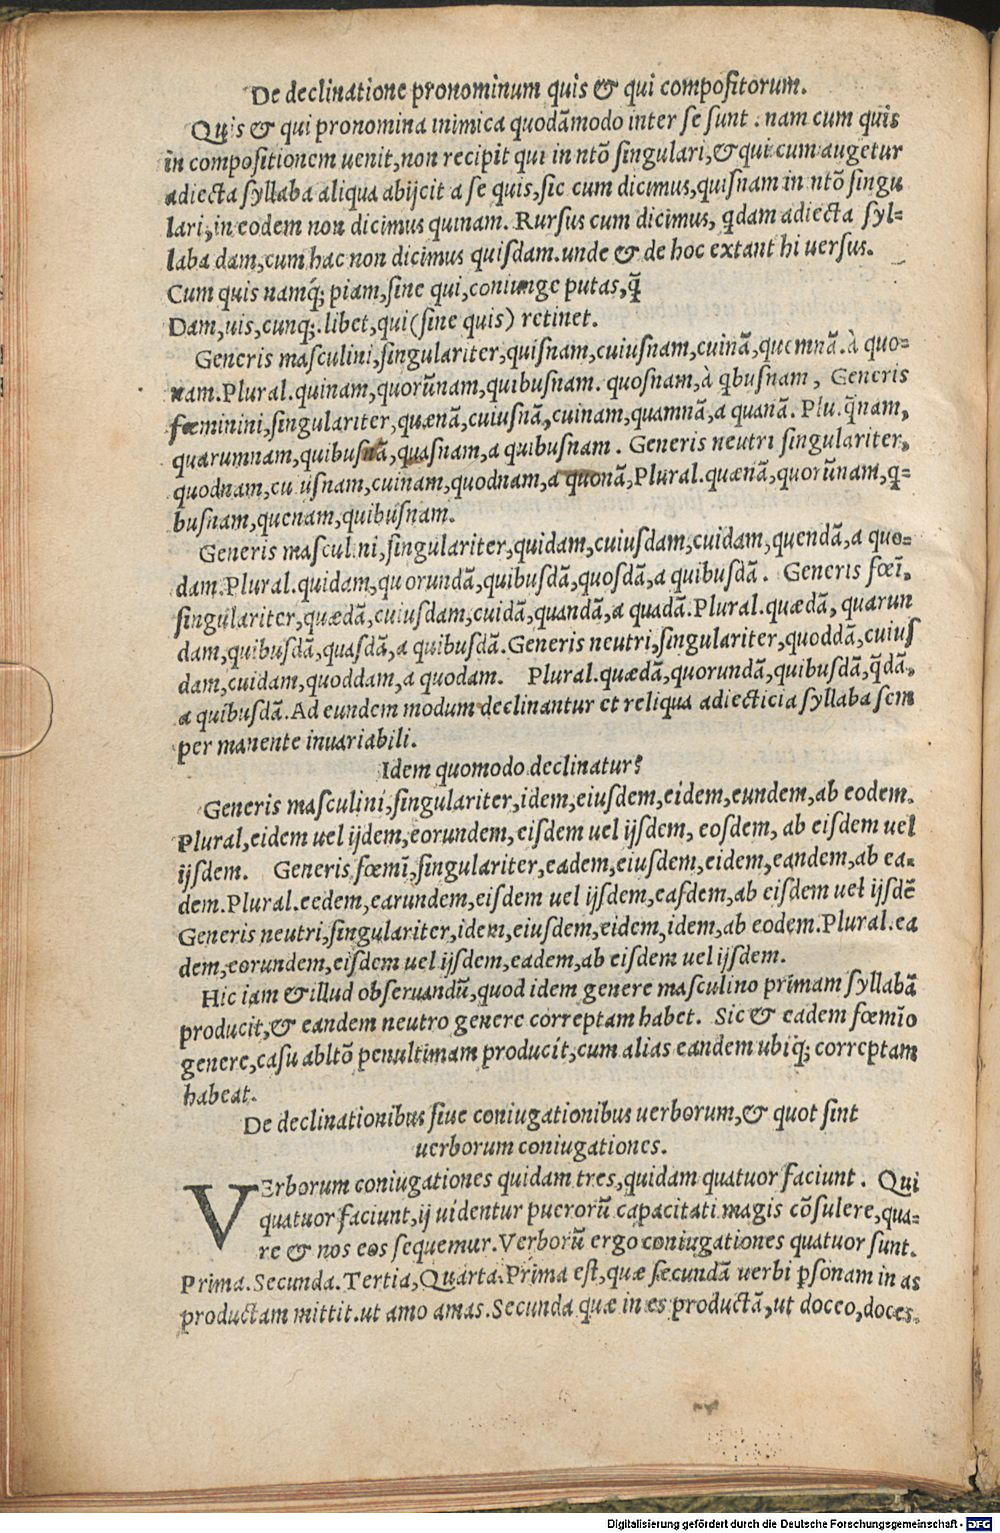 De declinatione pronominum quis & qui compoſitorum.
Quis & qui pronomina inimica quodãmodo inter ſe ſunt . nam cum quis
in compoſitionem uenit, non recipit qui in ntõ ſingulari, & qui cum augetur
adiecta ſyllaba aliqua abijcit a ſe quis, ſic cum dicimus, quiſnam in ntõ ſingu
lari, in eodem non dicimus quinam. Rurſus cum dicimus, qdam adiecta ſyl=
laba dam, cum hac non dicimus quiſdam. unde & de hoc extant hi uerſus.
Cum quis namq́; piam, ſine qui, coniunge putas, q̃
Dam, uis, cunq́;. libet, qui (ſine quis) retinet.
Generis maſculini, ſingulariter, quiſnam, cuiuſnam, cuinã, quemnã. à quo=
nam. Plural. quinam, quorũnam, quibuſnam. quoſnam, à qbuſnam , Generis
fœminini, ſingulariter, quænã, cuiuſnã, cuinam, quamnã, a quanã. Plu. q̃nam,
quarumnam, quibuſnã, quaſnam, a quibuſnam . Generis neutri ſingulariter,
quodnam, cuiuſnam, cuinam, quodnam, a quonã, Plural. quænã, quorũnam, q=
buſnam, quenam, quibuſnam.
Generis maſculini, ſingulariter, quidam, cuiuſdam, cuidam, quendã, a quo=
dam. Plural. quidam, quorundã, quibuſdã, quoſdã, a quibuſdã . Generis fœĩ.
ſingulariter, quædã, cuiuſdam, cuidã, quandã, a quadã. Plural. quædã, quarun
dam, quibuſdã, quaſdã, a quibuſdã. Generis neutri, ſingulariter, quoddã, cuiuſ
dam, cuidam, quoddam, a quodam. Plural. quædã, quorundã, quibuſdã, q̃dã,
a quibuſdã. Ad eundem modum declinantur et reliqua adiecticia ſyllaba ſem
per manente inuariabili.
Idem quomodo declinatur?
Generis maſculini, ſingulariter, idem, eiuſdem, eidem, eundem, ab eodem.
Plural, eidem uel ijdem, eorundem, eiſdem uel ijſdem, eoſdem, ab eiſdem uel
ijſdem. Generis fœmĩ, ſingulariter, eadem, eiuſdem, eidem, eandem, ab ea=
dem. Plural. eedem, earundem, eiſdem uel ijſdem, eaſdem, ab eiſdem uel ijſdẽ
Generis neutri, ſingulariter, idem, eiuſdem, eidem, idem, ab eodem. Plural. ea
dem, eorundem, eiſdem uel ijſdem, eadem, ab eiſdem uel ijſdem.
Hic iam & illud obſeruandũ, quod idem genere maſculino primam ſyllabã
producit, & eandem neutro genere correptam habet. Sic & eadem fœmĩo
genere, caſu abltõ penultimam producit, cum alias eandem ubiq́; correptam
habeat.
De declinationibus ſiue coniugationibus uerborum, & quot ſint
uerborum coniugationes.
VErborum coniugationes quidam tres, quidam quatuor faciunt . Qui
quatuor faciunt, ij uidentur puerorũ capacitati magis cõſulere, qua=
re & nos eos ſequemur. Verborũ ergo coniugationes quatuor ſunt.
Prima. Secunda. Tertia, Quarta. Prima eſt, quæ ſecundã uerbi pſonam in as
productam mittit. ut amo amas. Secunda quæ in es productã, ut doceo, doces.
Digitalisierung gefördert durch die Deutsche Forschungsgemeinschaft - DFG